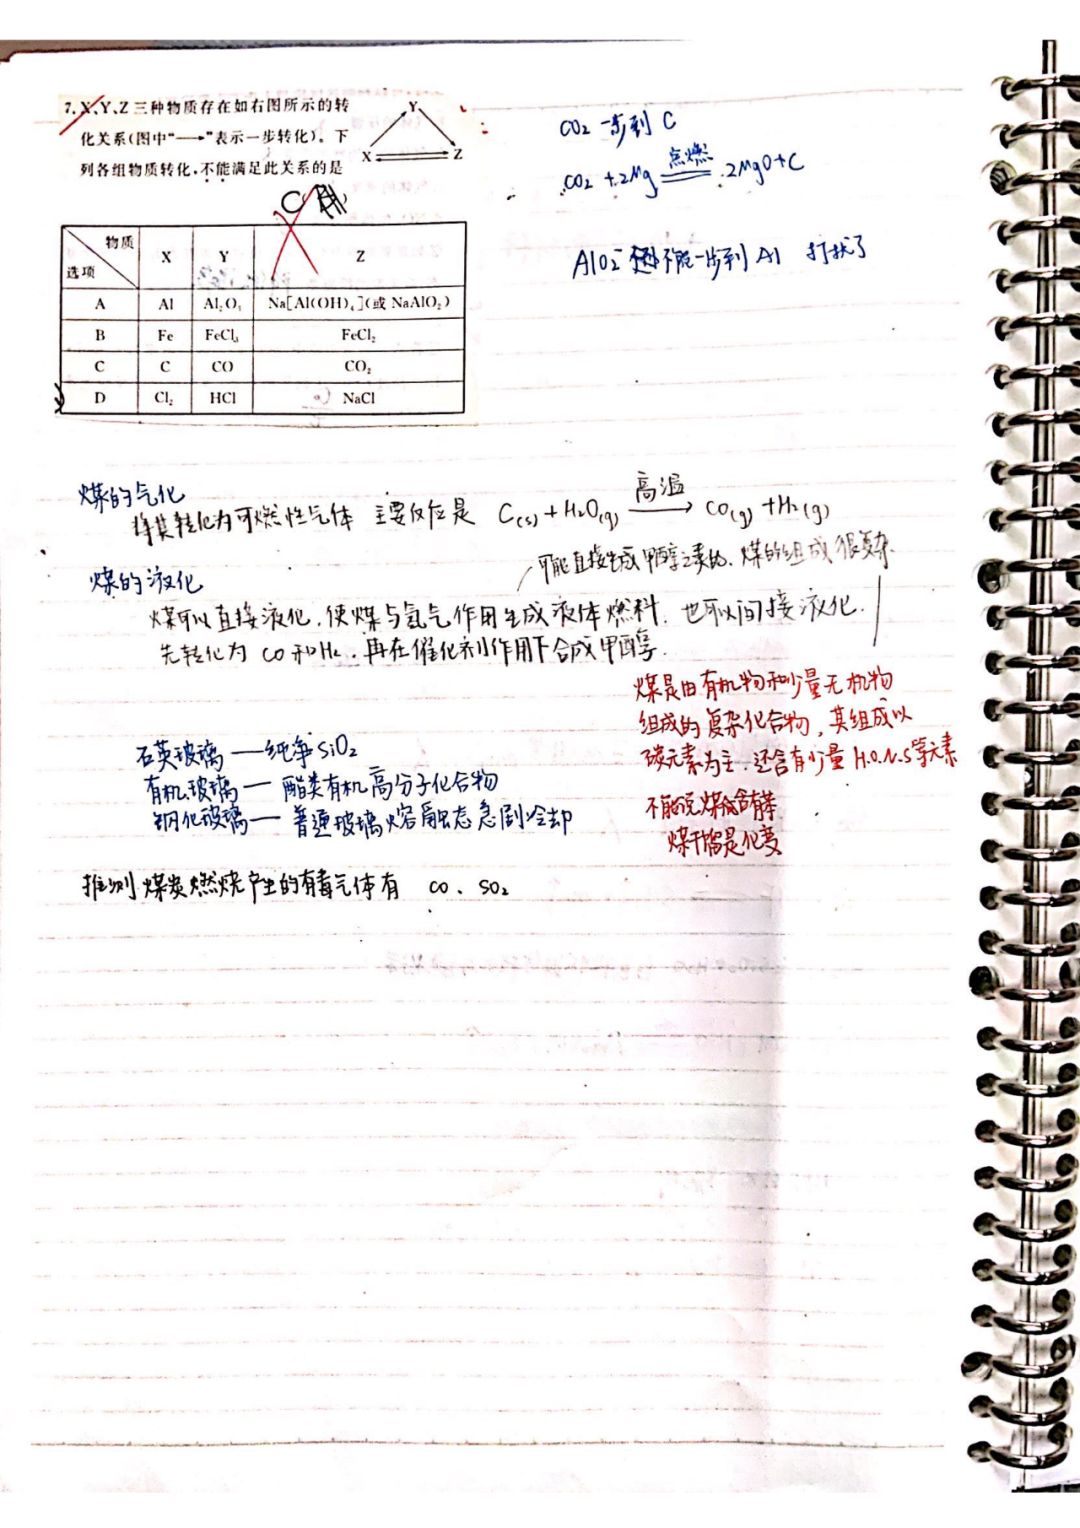 7. X、Y、Z 三种物质存在如右图所示的转
化关系(图中“⟶”表示一步转化)。下
列各组物质转化,不能满足此关系的是
Y
X
Z
C
物质
选项
X
Y
Z
A Al Al₂O₃ Na[Al(OH)₄](或 NaAlO₂)
B Fe FeCl₃ FeCl₂
C C CO CO₂
D Cl₂ HCl NaCl
CO₂ 一步到 C
CO₂ + 2Mg 点燃 2MgO + C
AlO₂⁻ 不能一步到 Al 打扰了
煤的气化
将其转化为可燃性气体 主要反应是 C(s) + H₂O(g) 高温 ⟶ CO(g) + H₂(g)
可能直接生成甲醇之类的、煤的组成很复杂
煤的液化
煤可以直接液化,使煤与氢气作用生成液体燃料,也可以间接液化.
先转化为 CO和H₂,再在催化剂作用下合成甲醇.
煤是由有机物和少量无机物
组成的复杂化合物,其组成以
碳元素为主,还含有少量 H.O.N.S等元素
不能说煤含有苯
煤干馏是化变
石英玻璃 — 纯净SiO₂
有机玻璃 — 酯类有机高分子化合物
钢化玻璃 — 普通玻璃熔融态急剧冷却
推测煤炭燃烧产生的有毒气体有 CO、SO₂